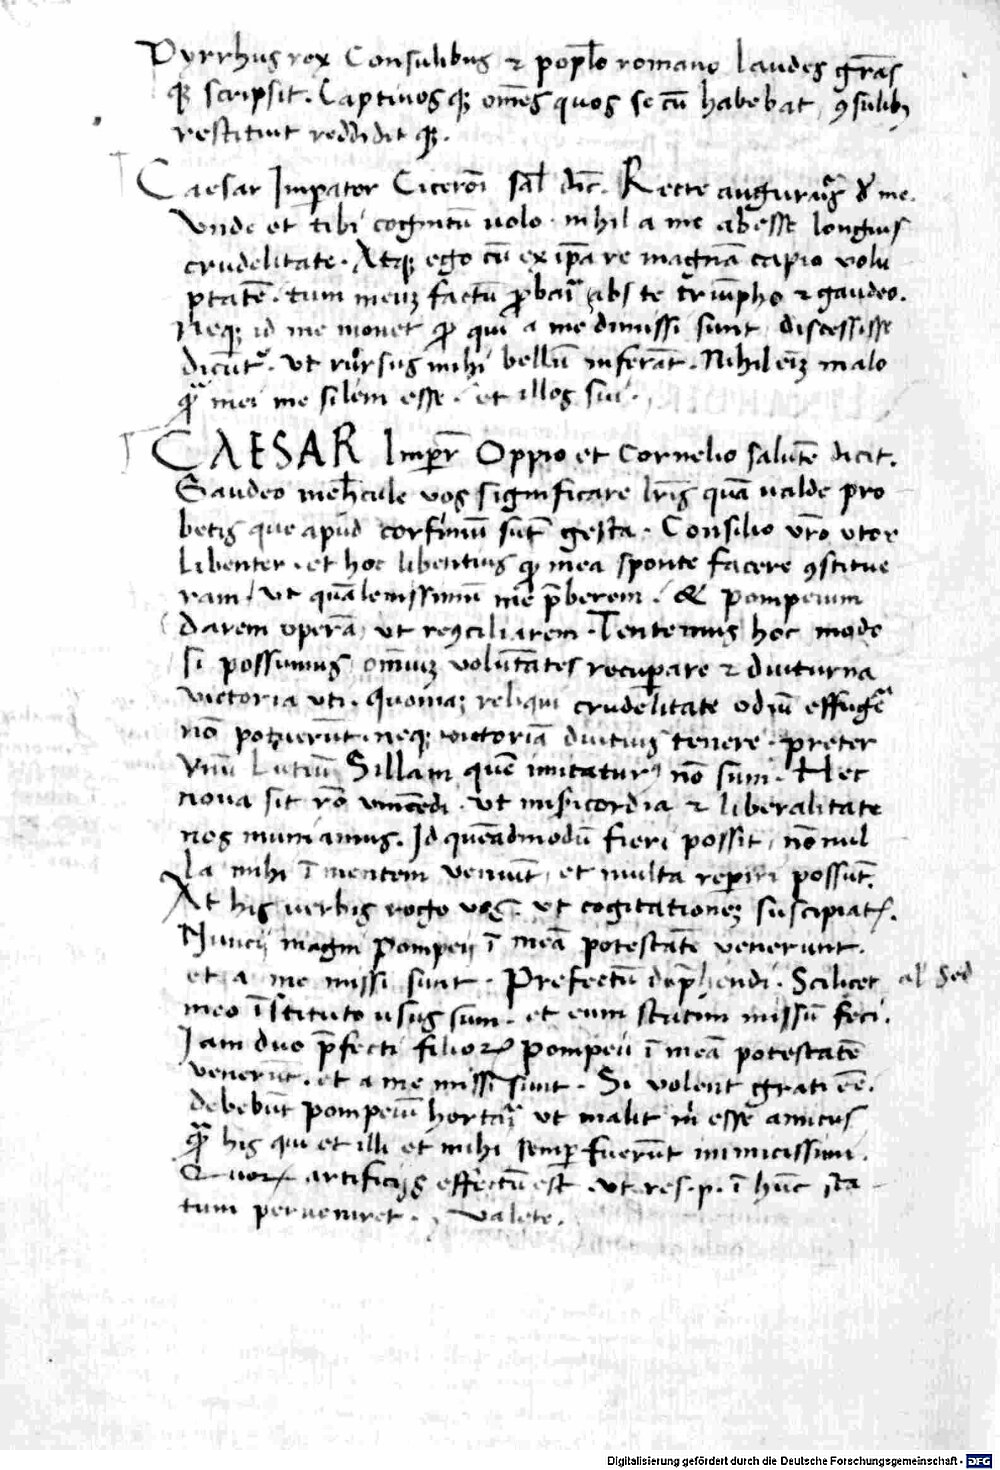 Pyrrhus rex Consulibus ⁊ poplo romano laudes gras
qꝫ scripsit. Captiuos qꝫ omes quos se cū habebat, ꝯsulibꝫ
restituit reddidit qꝫ.
Caesar Imperator Ciceroni sal dic. Recte augurais de me.
Vnde et tibi cognitū uolo. nihil a me abesse longius
crudelitate. Atqꝫ ego cū ex ipa re magnā capio volu
ptatē. tum meuꝫ factū ꝓbari abs te triumpho ⁊ gaudeo.
Neqꝫ id me mouet qui a me dimissi sunt, discessisse
dicunt. Vt rursus mihi bellū inferāt. Nihil eiꝫ malo
mei me silem esse. et illos sui.
CAESAR Imper Oppio et Cornelio salutē dicit.
Gaudeo mehcule uos significare lris quā ualde pro
betis que apud corfiniū sūt gesta. Consilio vro vtor
libenter. et hoc libentius mea sponte facere ꝯstitue
ram, Vt quālenissimū me p̄berem. & pompeium
darem operā, ut reꝯciliarem. Tentemus hoc modo
si possumus, omiuꝫ voluntates recuperare ⁊ diuturna
victoria vti. quoniaꝫ reliqui crudelitate odiū effugē
nō potuerūt. neqꝫ uictoriā diutius tenere. preter
vnū Lutiū Sillam quē imitatur nō sum. Hec
noua sit rō vincēdi. Vt misericordia ⁊ liberalitate
nos muniamus. Id queadmodū fieri possit, nō nul
la mihi ī mentem veniūt, et multa reperiri possūt.
At his uerbis rogo vos. ut cogitationeꝫ suscipiat.
Nuncij magni pompeij ī meā potestatē venerunt.
et a me missi sunt. Prefectū dep̄hendi. Scilicet al Sed
meo īstituto usus sum. et eum statim missū feci.
Jam duo p̄fecti filior pompeii ī meā potestatē
venerūt. et a me missi sunt. Si volent grati eē.
debebūt pompeiū hortari ut malit mi esse amicus
his qui et illi et mihi semper fuerūt inimicissimi.
Quor artificijs effectū est ut res. p. ī hūc sta
tum perueniret. Valete.
Digitalisierung gefördert durch die Deutsche Forschungsgemeinschaft - DFG